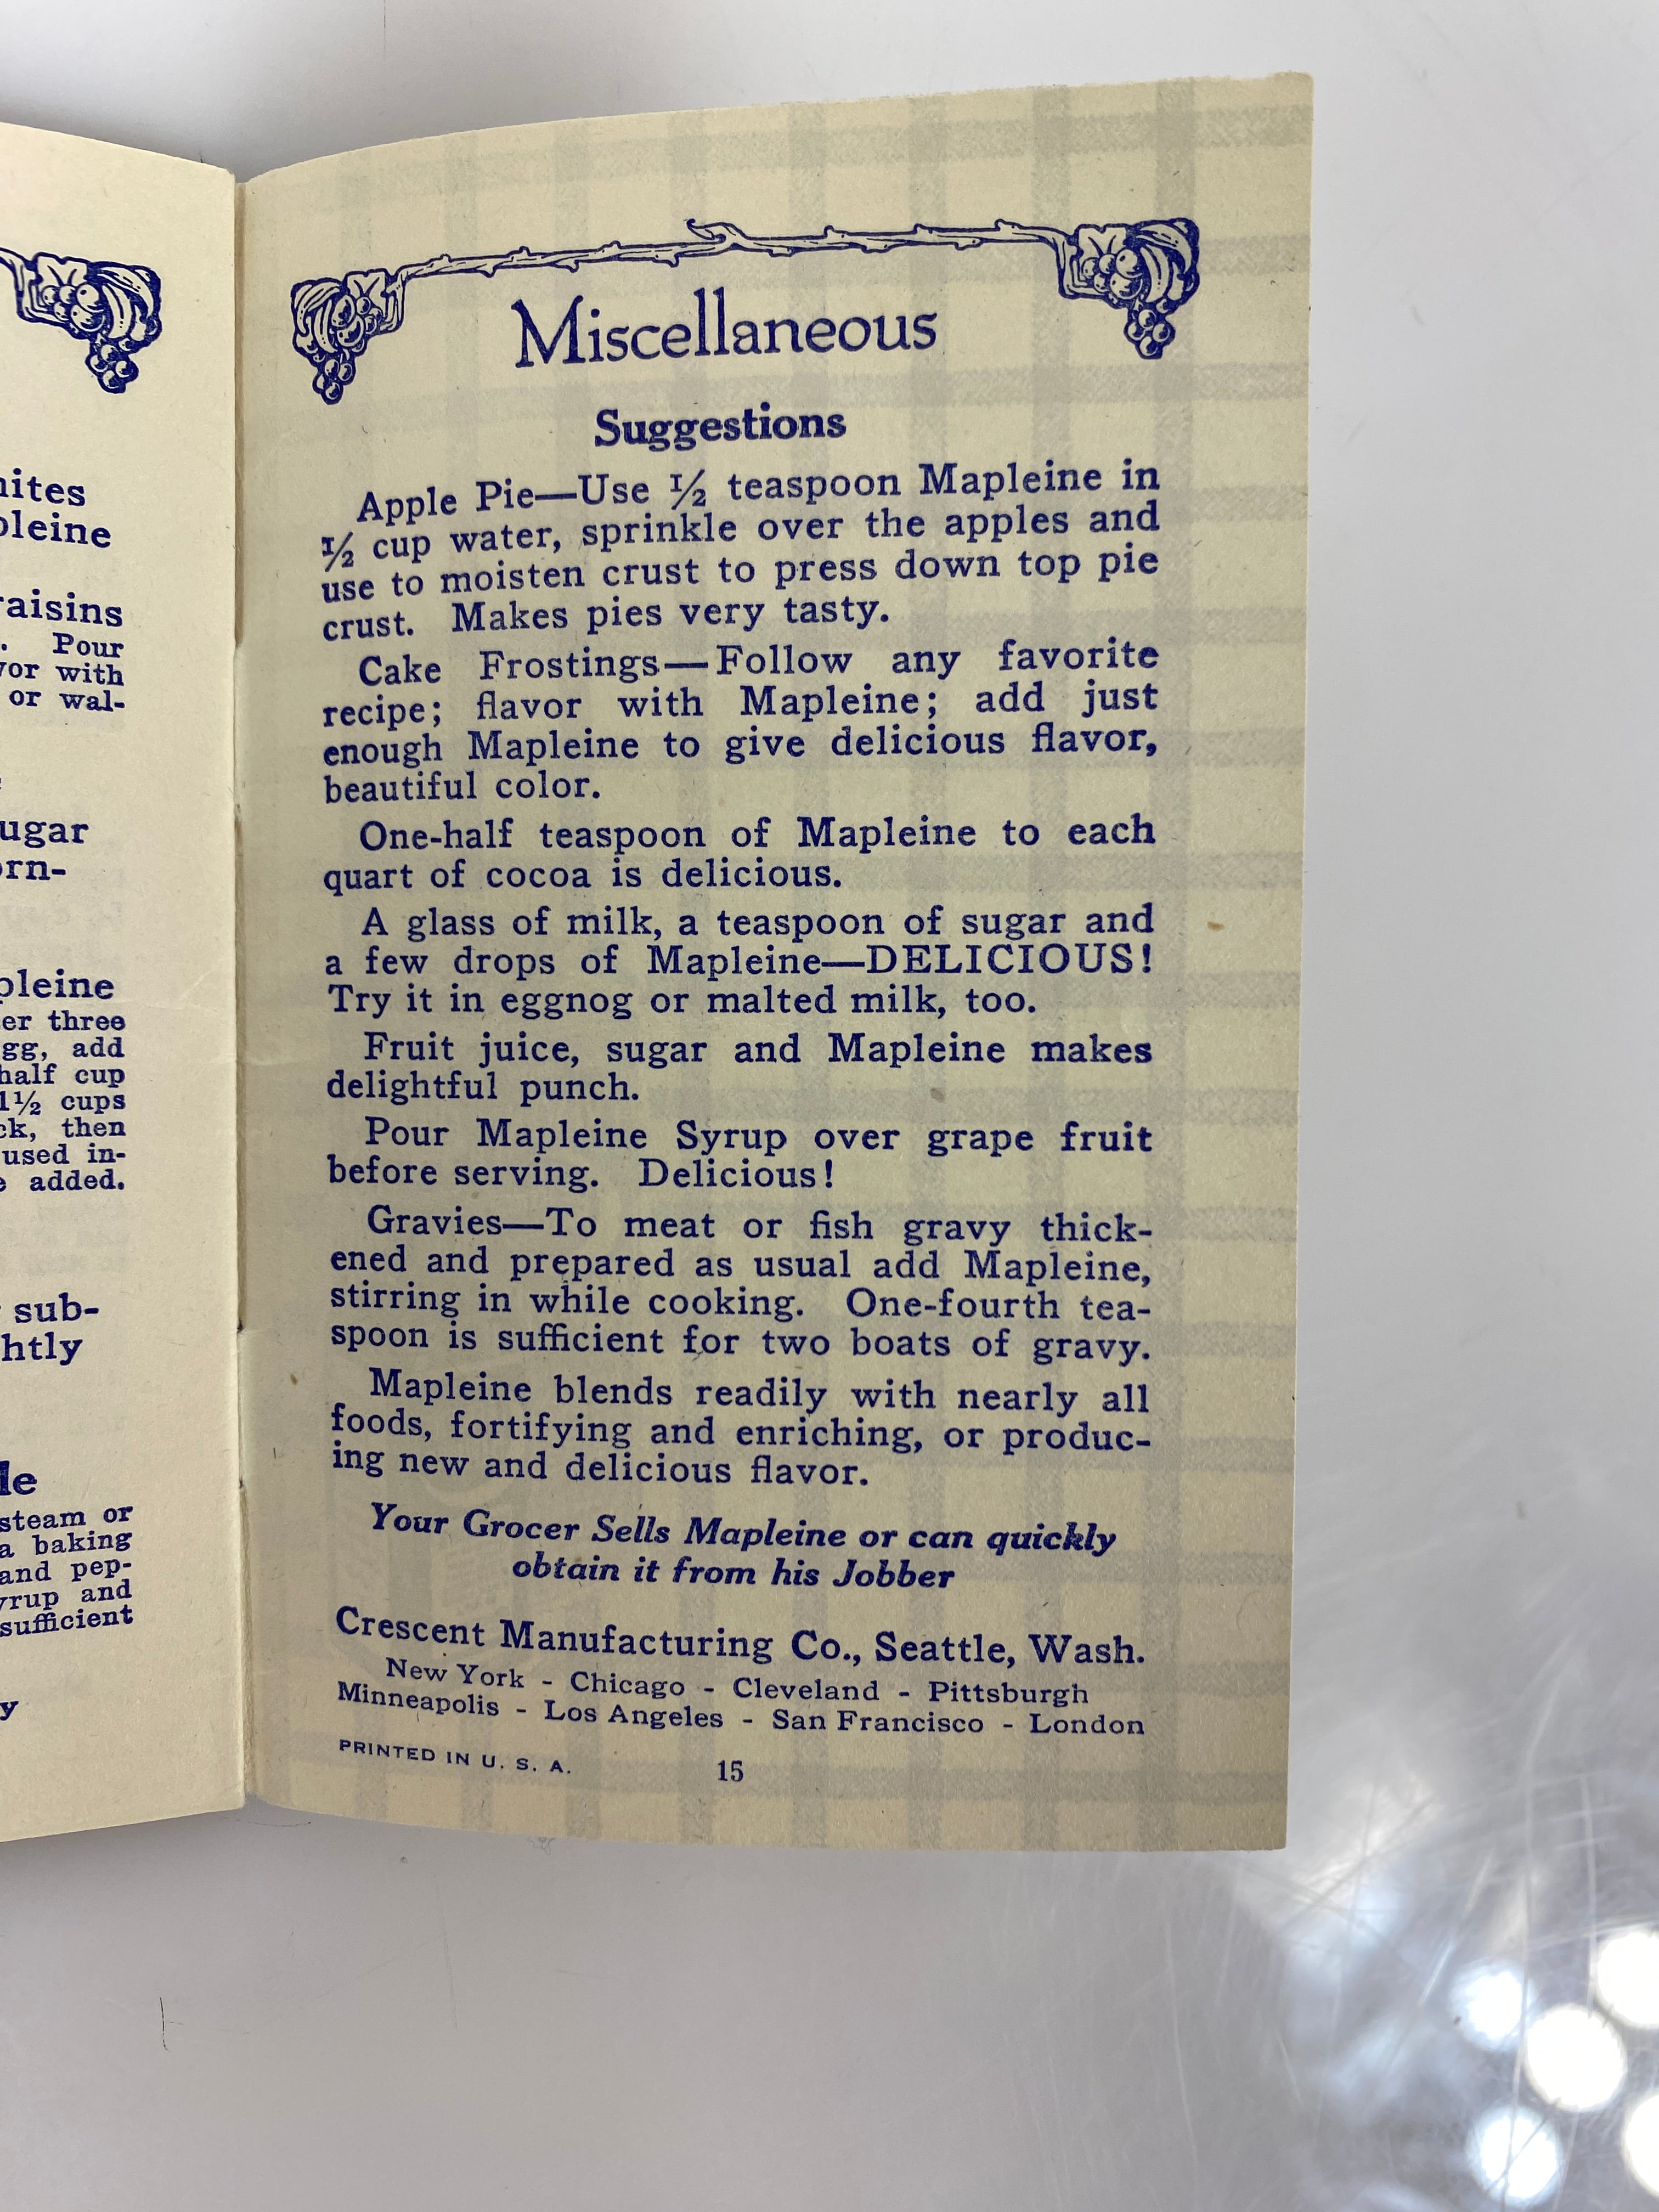 hites
pleine
raisins
. Pour
vor with
or wal-
ugar
orn-
pleine
er three
gg, add
half cup
1½ cups
ck, then
used in-
e added.
sub-
htly
le
steam or
a baking
and pep-
yrup and
sufficient
y
Miscellaneous
Suggestions
Apple Pie—Use ½ teaspoon Mapleine in
½ cup water, sprinkle over the apples and
use to moisten crust to press down top pie
crust. Makes pies very tasty.
Cake Frostings—Follow any favorite
recipe; flavor with Mapleine; add just
enough Mapleine to give delicious flavor,
beautiful color.
One-half teaspoon of Mapleine to each
quart of cocoa is delicious.
A glass of milk, a teaspoon of sugar and
a few drops of Mapleine—DELICIOUS!
Try it in eggnog or malted milk, too.
Fruit juice, sugar and Mapleine makes
delightful punch.
Pour Mapleine Syrup over grape fruit
before serving. Delicious!
Gravies—To meat or fish gravy thick-
ened and prepared as usual add Mapleine,
stirring in while cooking. One-fourth tea-
spoon is sufficient for two boats of gravy.
Mapleine blends readily with nearly all
foods, fortifying and enriching, or produc-
ing new and delicious flavor.
Your Grocer Sells Mapleine or can quickly
obtain it from his Jobber
Crescent Manufacturing Co., Seattle, Wash.
New York - Chicago - Cleveland - Pittsburgh
Minneapolis - Los Angeles - San Francisco - London
PRINTED IN U. S. A.
15